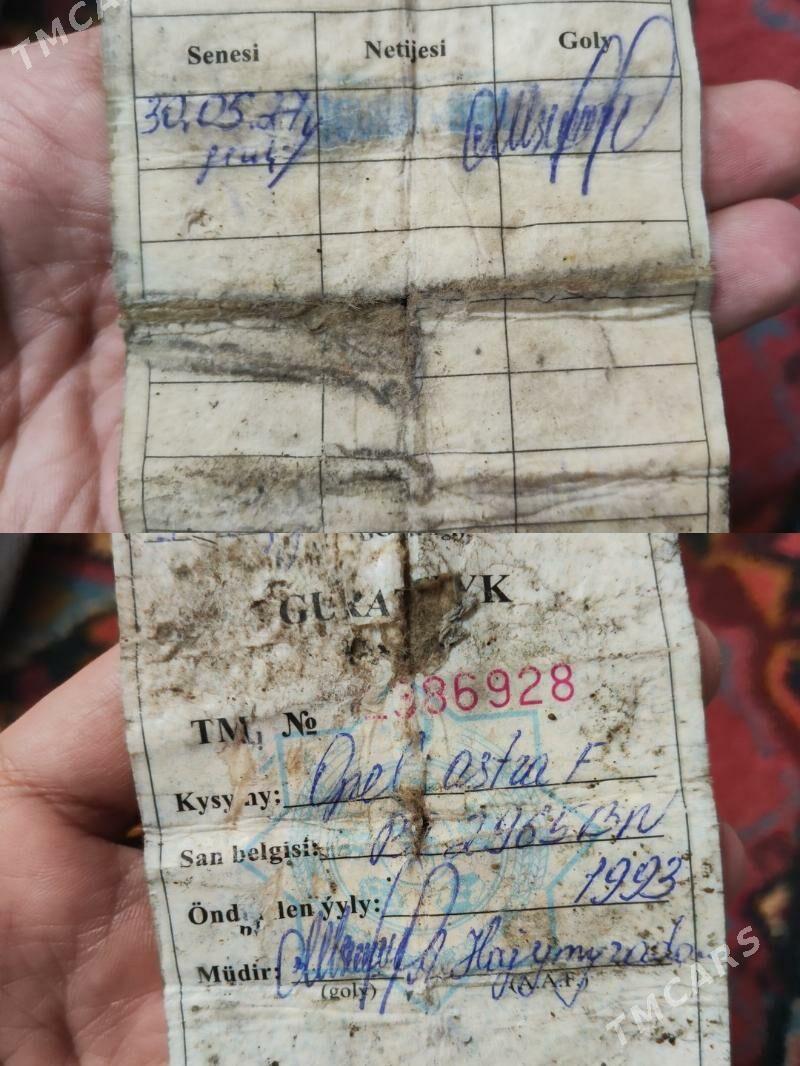 TMCARS
Senesi Netijesi Goly
30.05.24y
TM, № 386928
Kysymy: Opel astra F
San belgisi:
Öndürilen ýyly: 1993
Müdir: A. Hajymyradow
(goly) (A.A.F.)
TMCARS